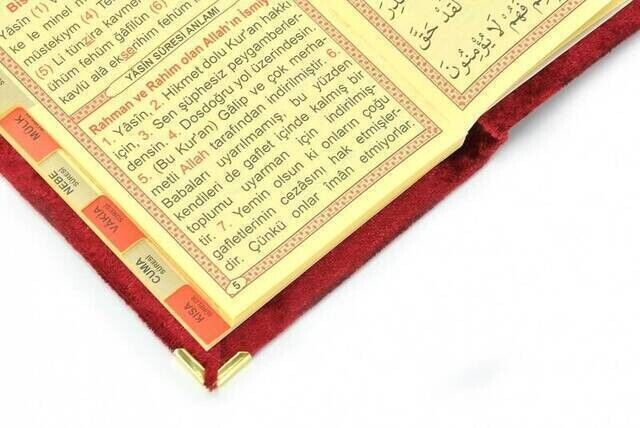 Yâsîn (1)
ke le minel m
müstekıym (4) Te
(5) Li tünzira kavme
ühüm fehüm gâfilûn (6)
kavlü alâ ekserihim fehüm
YÂSİN SÛRESİ ANLAMI
Rahman ve Rahim olan Allah'ın İsmiy
1. Yâsîn, 2. Hikmet dolu Kur'an hakkı
için, 3. Sen şüphesiz peygamberler-
densin. 4. Dosdoğru yol üzerindesin.
5. (Bu Kur'an) Gâlip ve çok merha-
metli Allah tarafından indirilmiştir. 6.
Babaları uyarılmamış, bu yüzden
kendileri de gaflet içinde kalmış bir
toplumu uyarman için indirilmiş-
tir. 7. Yemin olsun ki onların çoğu
gafletlerinin cezâsını hak etmişler-
dir. Çünkü onlar îmân etmiyorlar.
5
لَقَدْ حَقَّ
فَهُمْ لَا يُؤْمِنُونَ
MÜLK
NEBE
SÛRESİ
VÂKIA
SÛRESİ
CUMA
SÛRESİ
KISA
SÛRELER